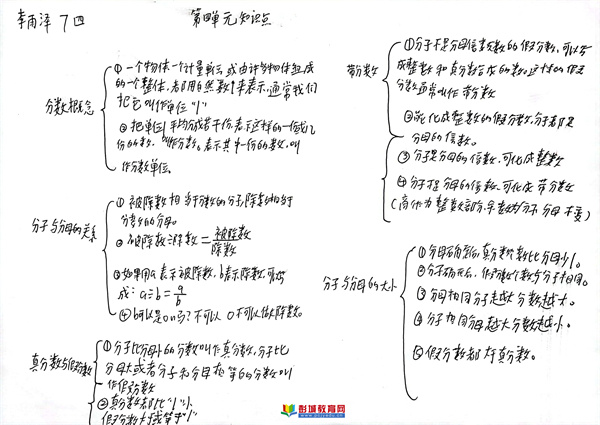 李雨泽 7 四
第四单元知识点
分数概念
①一个物体一个计量单位或由许多物体组成
的一个整体,都用自然数1来表示,通常我们
把它叫作单位"1"
②把单位1平均分成若干份,表示这样的一份或几
份的数,叫作分数。表示其中一份的数,叫
作分数单位。
分子与分母的关系
①被除数相当于分数的分子,除数相当于
分数的分母。
②被除数÷除数=被除数/除数
③如果用a表示被除数,b表示除数,可以写
成:a÷b=a/b
④b可以是0吗?不可以 0不可以做除数。
真分数与假分数
①分子比分母小的分数叫作真分数,分子比
分母大或者分子和分母相等的分数叫
作假分数
②真分数都比"1"小
假分数大于或等于"1"
带分数
①分子不是分母倍数的假分数,可以写
成整数和真分数合成的数。这样的假
分数通常叫作带分数
②能化成整数的假分数,分子都是
分母的倍数。
③分子是分母的倍数,可化成整数
④分子不是分母的倍数,可化成带分数
(商作为整数部分,余数为分子 分母不变)
分子与分母的大小
①分母确定后,真分数个数比分母少1。
②分子确定后,假分数个数与分子相同。
③分母相同分子越大分数越大。
④分子相同分母越大分数越小。
⑤假分数都大于真分数。
彭城教育网